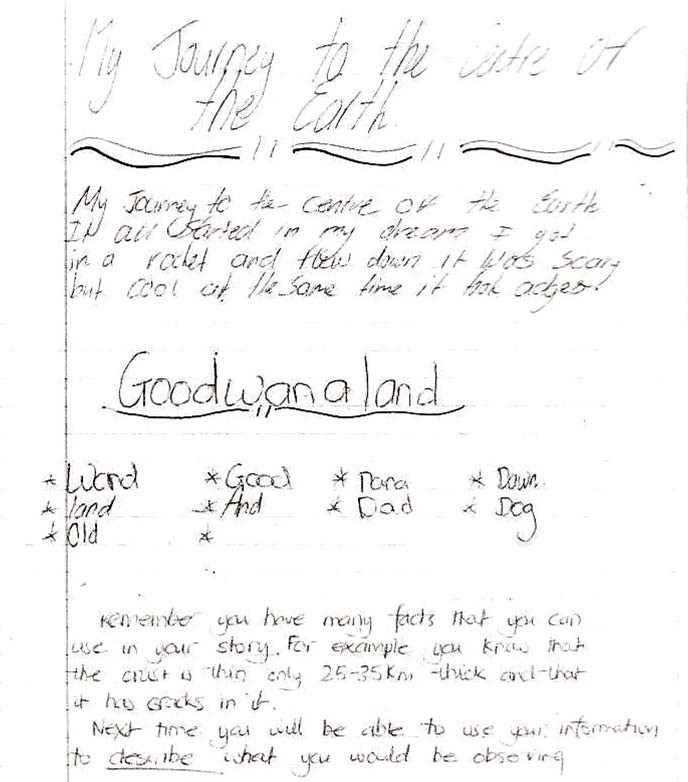 My Journey to the centre of
the Earth.
My Journey to the centre of the Earth
It all started in my dream I got
in a rocket and flew down it was scary
but cool at the same time it took adges.
Goodwanaland
* Word * Good * Nana * Down.
* land * And * Dad * Dog
* Old *
remember you have many facts that you can
use in your story. For example you know that
the crust is thin only 25-35Km thick and that
it has cracks in it.
Next time you will be able to use your information
to describe what you would be observing